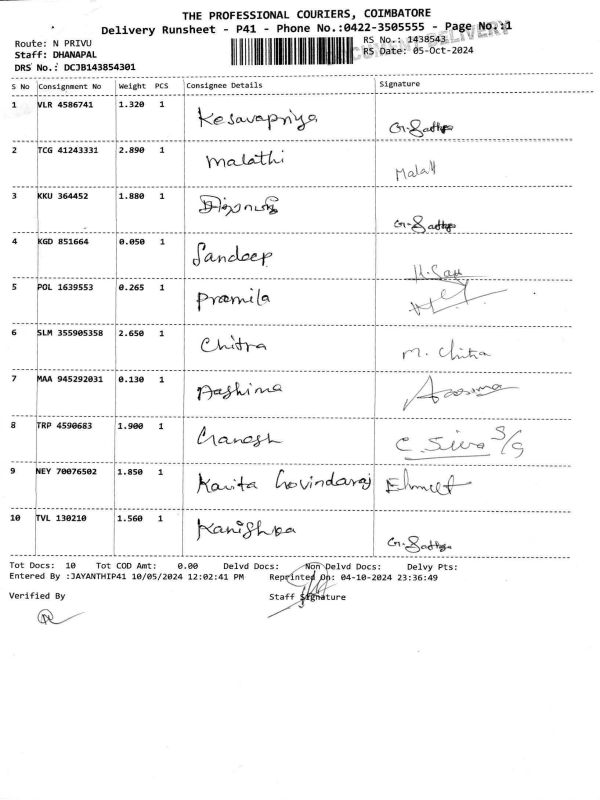 THE PROFESSIONAL COURIERS, COIMBATORE
Delivery Runsheet - P41 - Phone No.:0422-3505555 - Page No.:1
Route: N PRIVU RS No.: 1438543 DELIVERY
Staff: DHANAPAL RS Date: 05-Oct-2024
DRS No.: DCJB143854301
S No Consignment No Weight PCS Consignee Details Signature
1 VLR 4586741 1.320 1 Kesavapriya G. Sathya
2 TCG 41243331 2.890 1 Malathi Malath
3 KKU 364452 1.880 1 G. Sathya
4 KGD 851664 0.050 1 Sandeep
5 POL 1639553 0.265 1 Pramila
6 SLM 355905358 2.650 1 Chitra M. Chitra
7 MAA 945292031 0.130 1 Aashima
8 TRP 4590683 1.900 1 Ganesh C. Siva S/o
9 NEY 70076502 1.850 1 Kavita Govindaraj
10 TVL 130210 1.560 1 Kanishka G. Sathya
Tot Docs: 10 Tot COD Amt: 0.00 Delvd Docs: Non Delvd Docs: Delvy Pts:
Entered By :JAYANTHIP41 10/05/2024 12:02:41 PM Reprinted On: 04-10-2024 23:36:49
Verified By Staff Signature